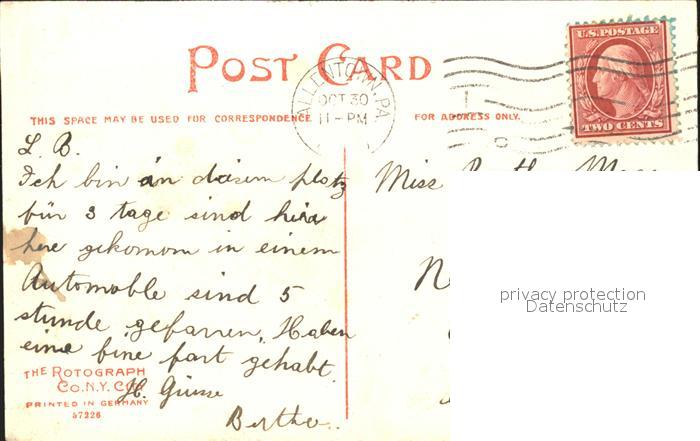 POST CARD
ALLENTOWN, PA.
OCT 30
11-PM
U.S. POSTAGE
TWO CENTS
THIS SPACE MAY BE USED FOR CORRESPONDENCE
FOR ADDRESS ONLY.
L. B.
Ich bin an disem platz
für 3 tage sind hira
here gekomom in einem
Automoble sind 5
stunde gefarren, Haben
eine fine fart gehabt.
H. Grüsse
Bertha.
Miss
privacy protection
Datenschutz
THE ROTOGRAPH
CO. N.Y. CITY
PRINTED IN GERMANY
57226